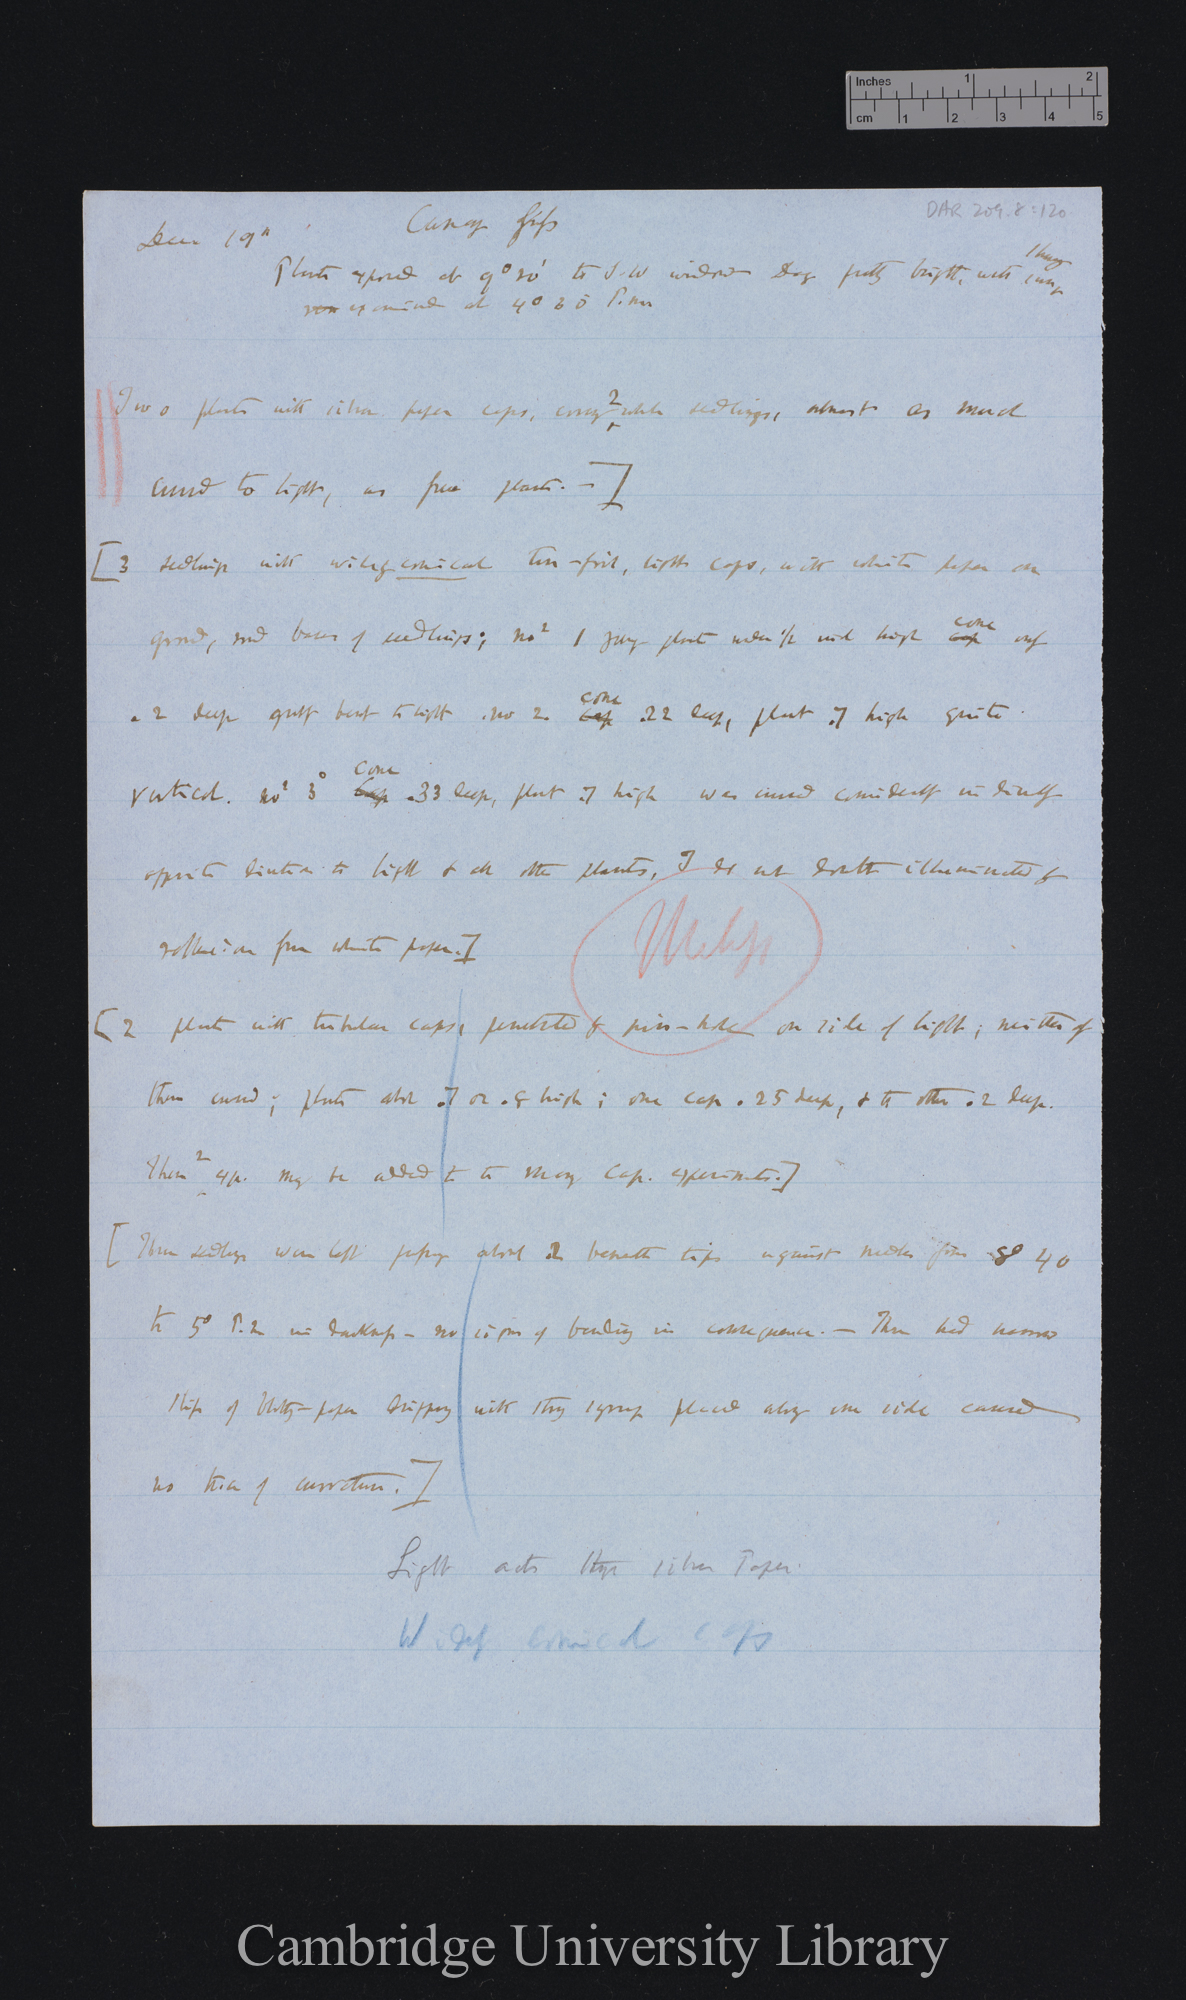 Inches 1 2
cm 1 2 3 4 5
DAR 209.8:120
Canary Grass
Dec 19th
Plants exposed at 9° 20' to S.W window Day pretty bright, with
examined at 4° P.m
Two plants with silver paper caps, seedlings, almost as much
curved to light, as free plants. —]
[3 seedlings with widely conical tin-foil, light caps, with white paper on
ground, round bases of seedlings; no 1 young plant high cone Cap only
.2 deep quite bent to light. no 2. cone Cap .22 deep, plant .7 high quite
vertical. no 3 cone Cap .33 deep, plant .7 high was curved considerably in directly
opposite direction to light & all other plants, I do not doubt illuminated by
reflexion from white paper.]
[2 plants with tubular caps, penetrated by pin-hole on side of light; neither of
them curved; plants about .7 or .8 high; one cap .25 deep, & the other .2 deep.
These 2 exp. may be added to the many Cap. experiments.]
[Three seedlings were left about .2 beneath tips against from 8° 40
to 5° P.m in darkness — no signs of bending in consequence. — Three had narrow
slips of blotting-paper dripping with syrup placed along one side caused
no trace of curvature.]
Light acts thro silver Paper.
Widely conical caps
Cambridge University Library